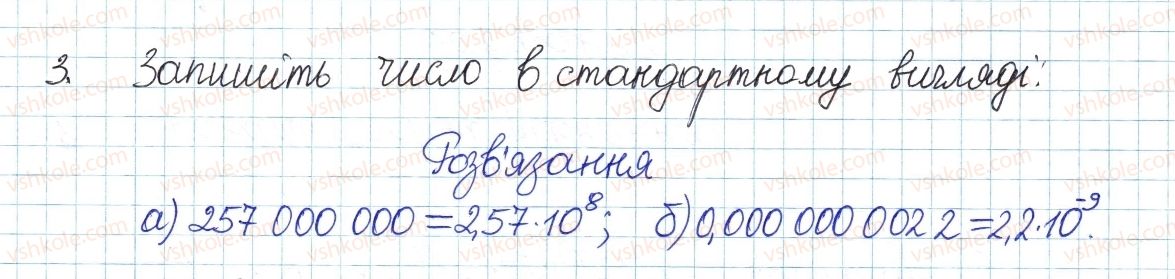 3. Запишіть число в стандартному вигляді:
Розв'язання
а) 257 000 000 = 2,57·10⁸; б) 0,000 000 002 2 = 2,2·10⁻⁹.